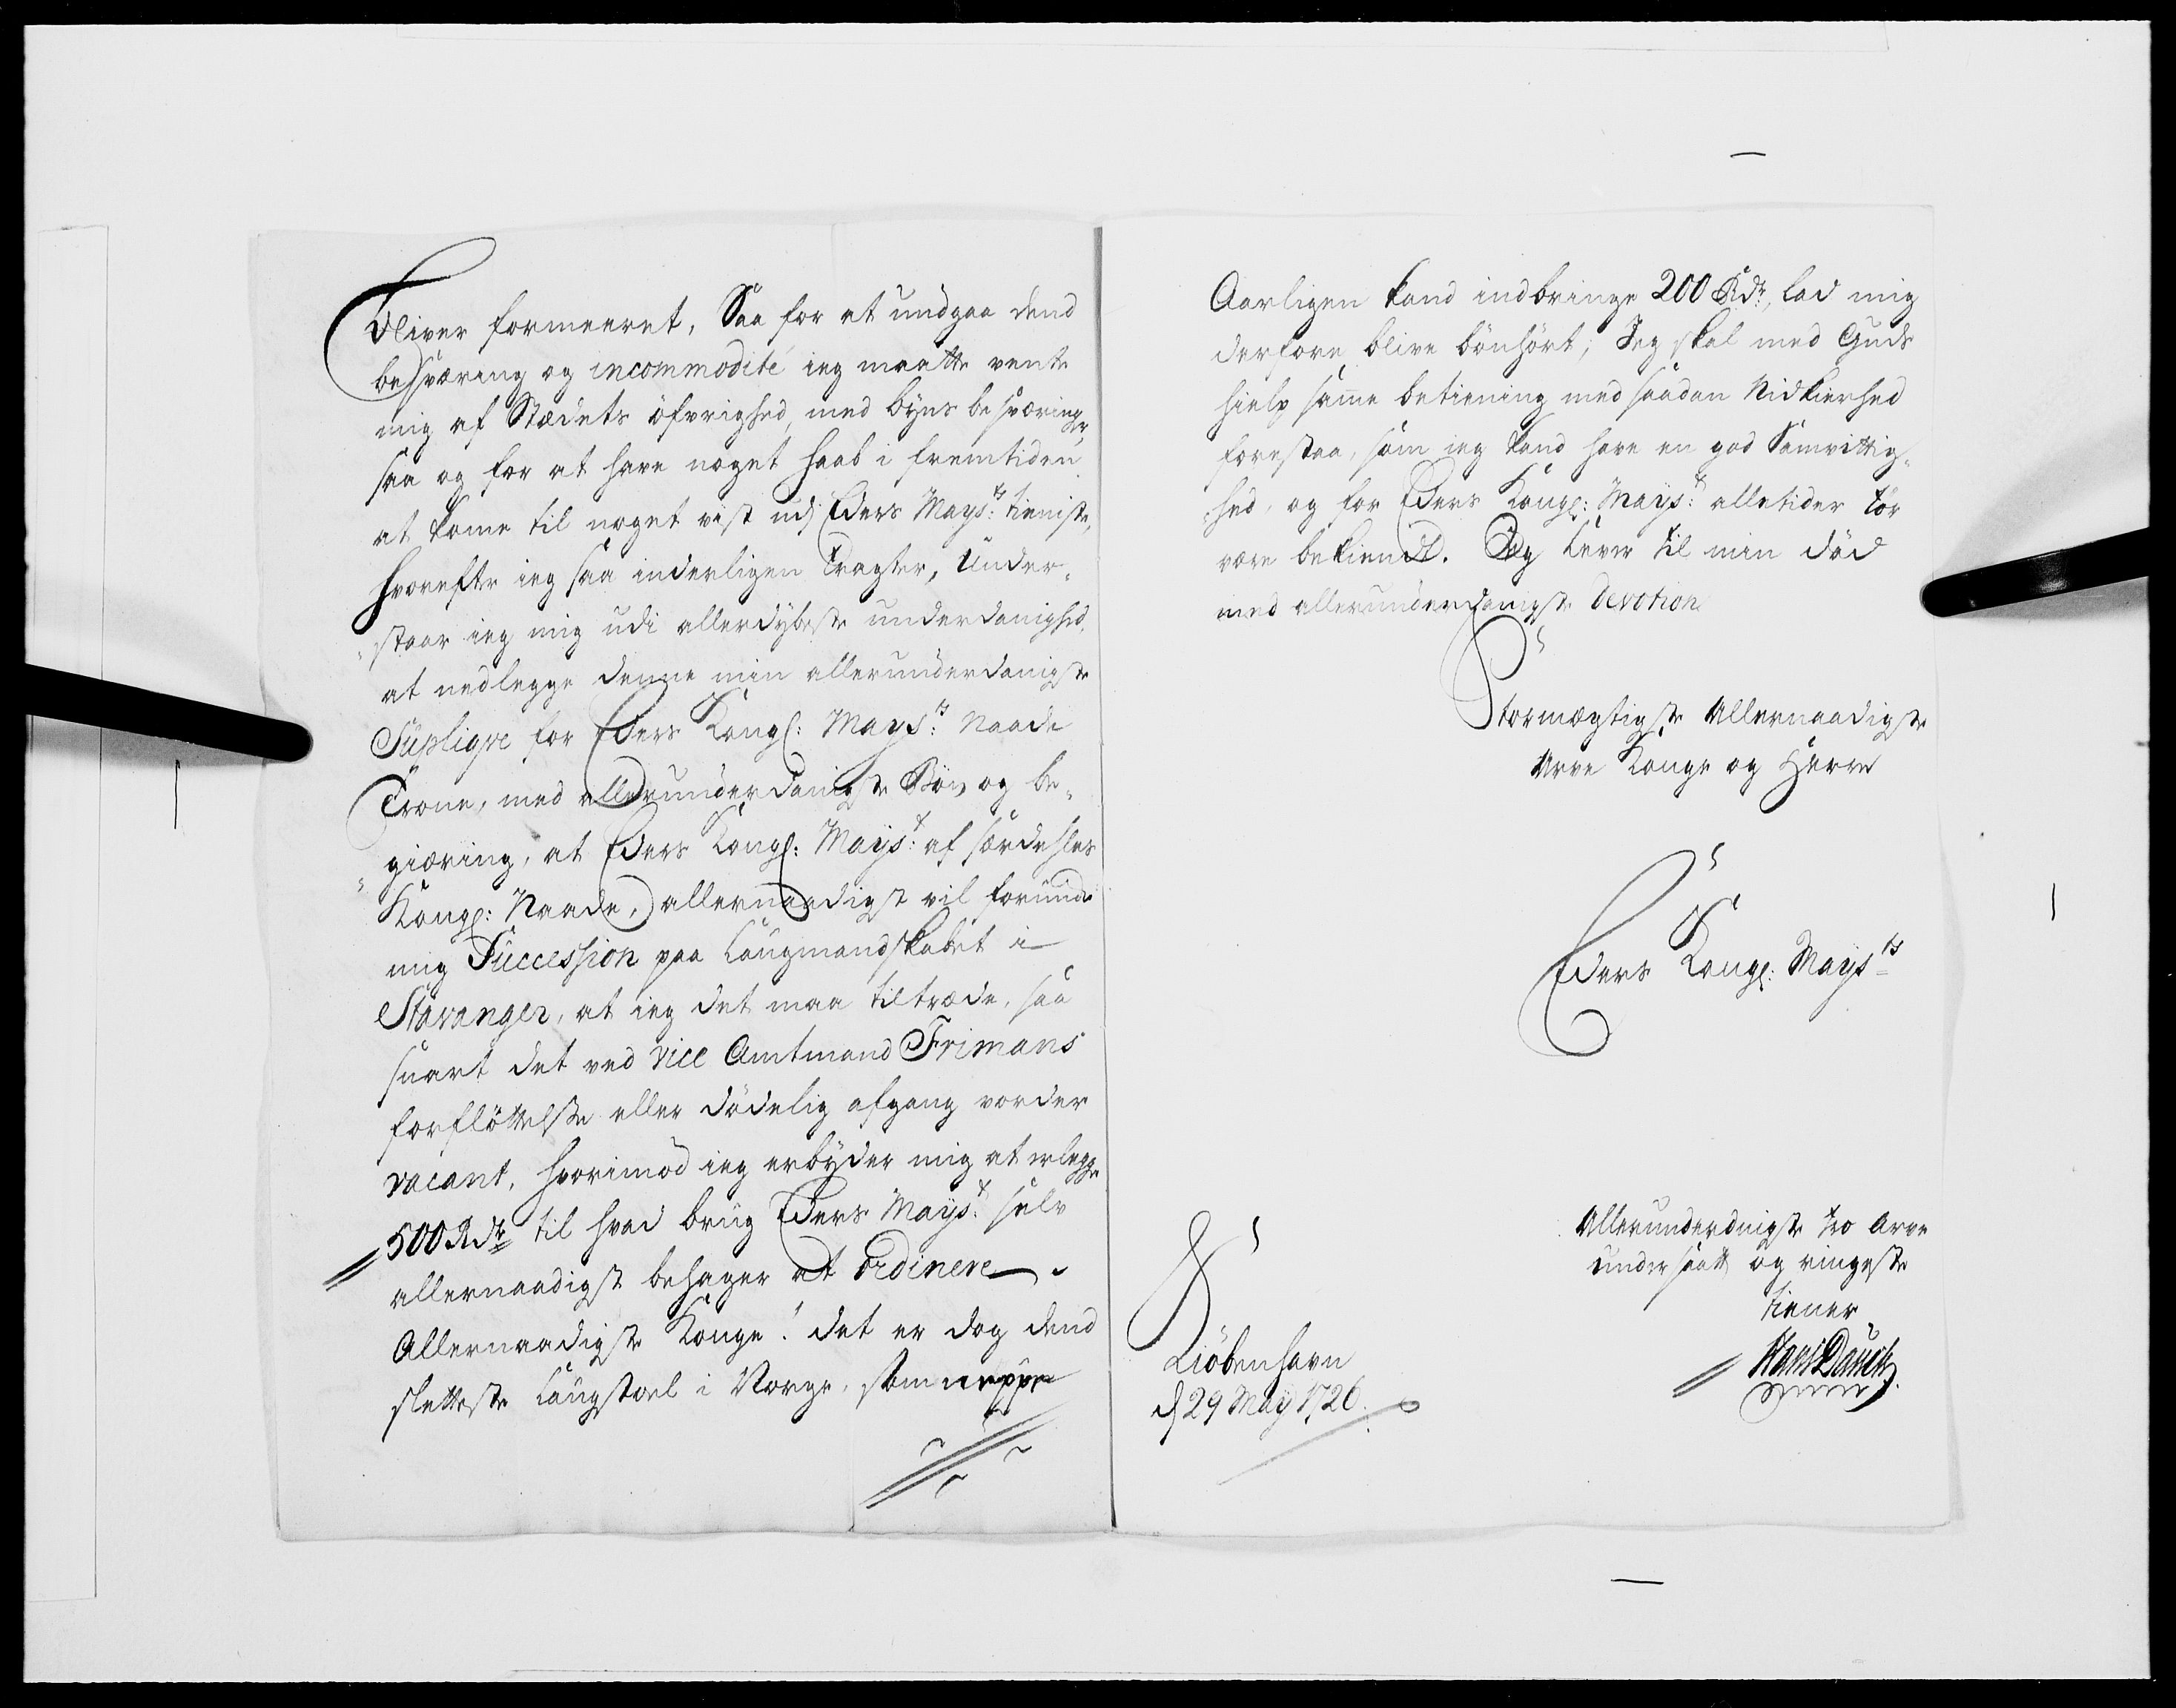 bliver formeeret, Saa for at undgaa dend
besværing og incommodité ieg maatte vente
mig af Stædets öfvrighed, med byens besværinger,
saa og for at have noget haab i fremtiden
at kome til noget vist udj Eders Mayts: tieniste,
hvorefter ieg saa inderligen Tragter, Under-
staar ieg mig udi allerdybeste underdanighed,
at nedlegge denne min allerunderdanigste
Supliqve for Eders Kongl: Mays:ts Naade
Trone, med allerunderdanigste Bön og be-
giæring, at Eders Kongl: Mays:t af særdehles
Kongl: Naade, allernaadigst vil forunde
mig Succession paa Laugmandskabet i
Stavanger, at ieg det maa tiltræde, saa
snart det ved vice Amtmand Frimans
forflöttelse eller dödelig afgang vorder
vacant, hvorimod ieg erbyder mig at erlegge
500 Rdr til hvad brug Eders Mays:t selv
allernaadigst behager at ordinere
Allernaadigste Konge! det er dog dend
sletteste Laugstoel i Norge, som neppe
Aarligen kand indbringe 200 Rdr:, lad mig
derfore blive bönhört; Jeg skal med Guds
hielp samme betiening med saadan Nidkierhed
forestaa, som ieg kand have en god Samvittig-
hed, og for Eders Kongl: Mays:t alletider tör
være bekiendt. Jeg lever til min död
med allerunderdanigste Devotion
Stormægtigste Allernaadigste
Arve Konge og Herre
Eders Kongl: Maysts
Allerunderdnigste tro Arve
undersaatt og ringeste
tiener
Hans Dauck
Kiöbenhavn
d 29 May 1726.